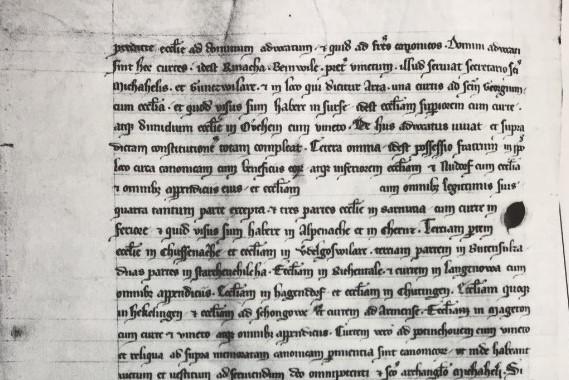 predicte ecclie ad dominum advocatum · et quid ad fres canonicos · Domini advocati
sunt hee curtes · idest Kinacha · Beinwile · preter vinetum · illud servat secretario sci
Michahelis · et Gunezwilare · et in loco qui dicitur Arta · una curtis ad scm Georgium ·
cum ecclia · et quod visus sum habere in surse · idest eccliam superiorem cum curte ·
atque dimidium ecclie in Ovchem cum vineto · De hus advocatus vivat et supra
dictam constitutionem totam compleat · Cetera omnia idest possessio fratrum in ipso
loco circa canonicam cum beneficiis atque inferiorem eccliam et Nudorf cum ecclia
et omnibus appendiciis eius · et eccliam cum omnibus legitimis suis
quarta tantum parte excepta · et tres partes ecclie in sarnuna cum curte in
feriore · et quid visus sum habere in Alpenache et in cherne · Terciam partem
ecclie in Chussenache et eccliam in Udelgoswilare · terciam partem in
duas partes in starchenchilcha · Eccliam in Richentale · et curtem in langenowa cum
omnibus appendiciis · Eccliam in hagendorf · et eccliam in chutingen · Eccliam quoque
in hekelingen · et eccliam ad schongowe · Et curtem ad Armense · Eccliam in Mageton
cum curte et vineto atque omnibus appendiciis · Curtem vero ad potinchovem cum vineto
et reliqua ad supra memoratam canonicam pertinentia sint canonicorum et inde habeant
victum et vestitum ad serviendum deo omnipotenti et sco archangelo Michaheli · Si